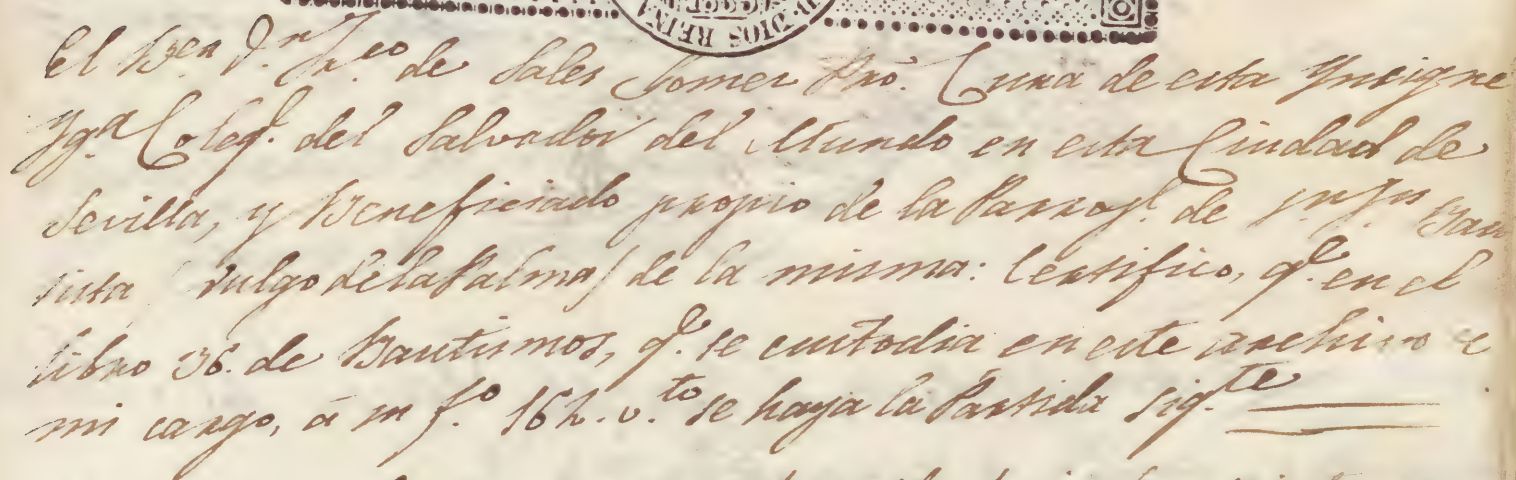 DIOS REIN
El B.en D.n Fr.co de Sales Gomez Pro. Cura de esta Ynsigne
Yg.a Coleg.l del Salvador del Mundo en esta Ciudad de
Sevilla, y Beneficiado propio de la Parroq.l de S.n J.n Bau
tista (vulgo de la Palma) de la misma: Certifico, q.e en el
libro 36. de Bautismos, q.e se custodia en este archivo
mi cargo, á su f.o 162. v.to se haya la Partida sig.te